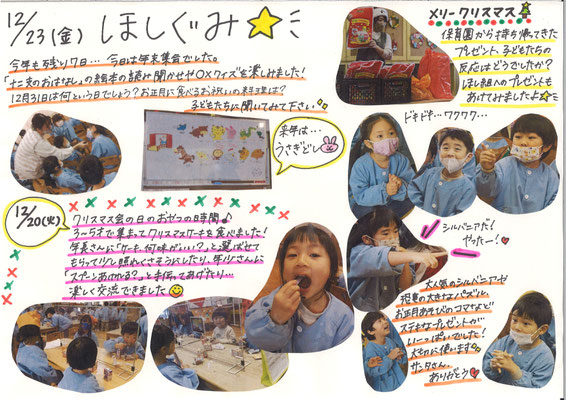 12/23(金) ほしぐみ
今年も残り7日… 今日は年末集会でした。
「十二支のおはなし」の絵本の読み聞かせや○×クイズを楽しみました!
12月31日は何という日でしょう?お正月に食べるお祝いの料理は?
子どもたちに聞いてみて下さい。
来年は…
うさぎどし
メリークリスマス
保育園から持ち帰ってきた
プレゼント、子どもたちの
反応はどうでしたか?
ほし組へのプレゼントも
あけてみましたよ
ドキドキ…ワクワク…
12/20(火)
クリスマス会の日のおやつの時間♪
3~5才で集まってクリスマスケーキを食べました!
年長さんに「ケーキ、何味がいい?」と選ばせて
もらって少し照れくさそうにしたり、年少さんに
「スプーンあけれる?」と手伝ってあげたり…
楽しく交流できました
シルバニアだ!
やったー!
大人気のシルバニアや
視覚の大きなパズル、
お正月あそびのコマなど
ステキなプレゼントが
いーっぱいでした!
大切に使います。
サンタさん
ありがとう